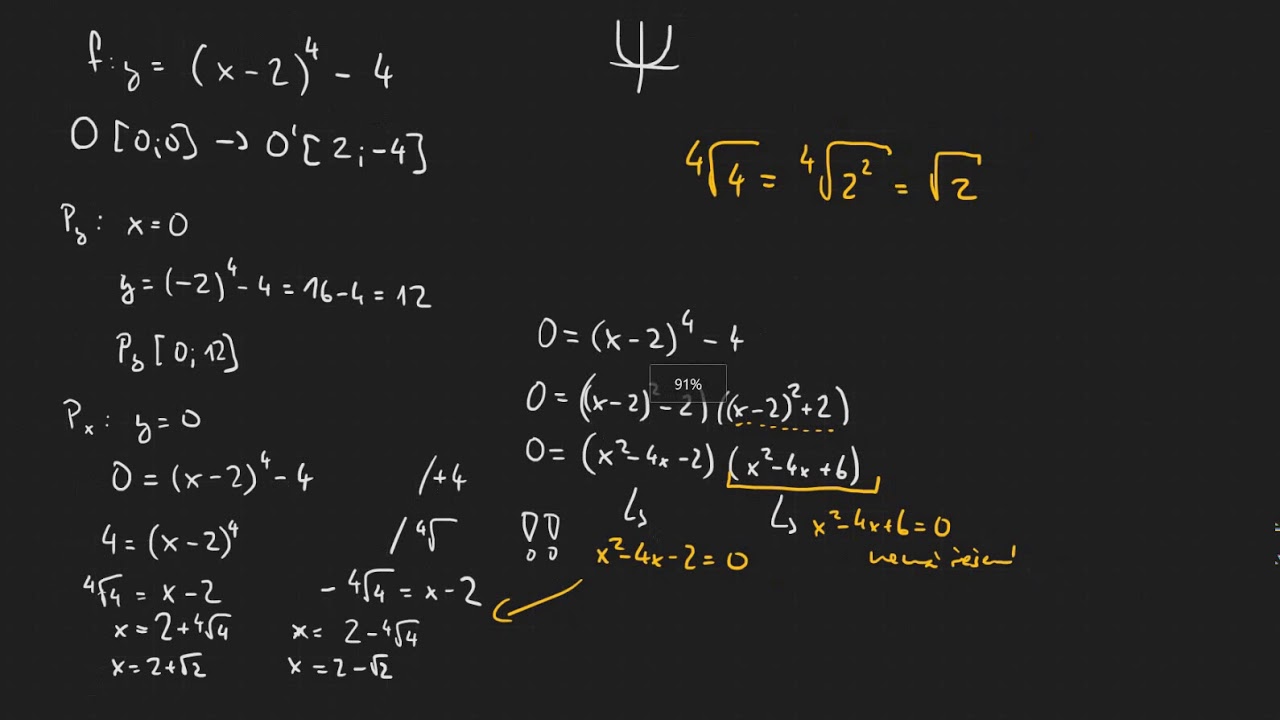 f: y = (x-2)⁴ - 4
O [0;0] → O' [2;-4]
P_y: x = 0
y = (-2)⁴ - 4 = 16 - 4 = 12
P_y [0; 12]
P_x: y = 0
0 = (x-2)⁴ - 4 /+4
4 = (x-2)⁴ /⁴√
⁴√4 = x - 2 - ⁴√4 = x - 2
x = 2 + ⁴√4 x = 2 - ⁴√4
x = 2 + √2 x = 2 - √2
⁴√4 = ⁴√2² = √2
0 = (x-2)⁴ - 4
91%
0 = ((x-2)² - 2) ((x-2)² + 2)
0 = (x² - 4x - 2) (x² - 4x + 6)
!! ↳ ↳ x² - 4x + 6 = 0
x² - 4x - 2 = 0 nemá řešení